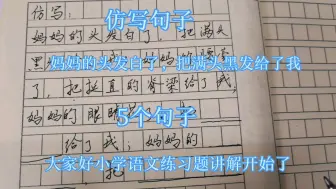 仿写:
仿写句子
妈妈的头发白了,把满头
妈妈的头发白了,把满头黑发给了我
了,把挺直的脊梁给了我,
妈妈的眼睛
5个句子
给了我;妈妈的
大家好小学语文练习题讲解开始了
把